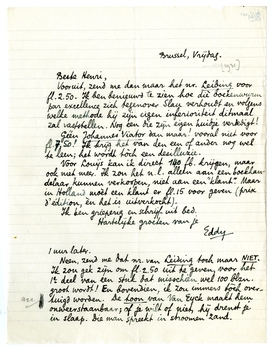 Brussel, Vrijdag.
Beste Henri,
Vooruit, zend me dan maar het nr. Leiding voor
fl. 2.50. Ik ben benieuwd te zien hoe die boekenwurm
par excellence zich tegenover Slau verhoudt en volgens
welke methode hij zijn eigen inferioriteit ditmaal
zal vaststellen. Nog een die zijn eigen huisje verdedigt!
Géén Johannes Viator dan maar! vooral niet voor
fl. 7,50! Ik krijg het van den een of ander nog wel
te leen; het wordt toch een desillusie.
Voor Louÿs kan ik direct 100 fl. krijgen, maar
ook niet meer. Ik zou het n.l. alleen aan een boekhan-
delaar kunnen verkoopen, niet aan een klant. Maar in
Holland moet een klant er fl. 15 voor geven (prix
d'édition, én het is uitverkocht).
Ik ben grieperig en schrijf uit bed.
Hartelijke groeten van je
Eddy
1 uur later.
Neen, zend me dat nr. van Leiding toch maar NIET.
Ik zou gek zijn om fl. 2.50 uit te geven, voor het
1e deel van een stuk dat misschien wel 100 blzn.
groot wordt! En bovendien, ik zou immers toch over-
tuigd worden. De toon van Van Eyck maakt hem
onweerstaanbaar; of je wilt of niet, hij dreint je
in slaap. Die man spreekt in stroomen zand.